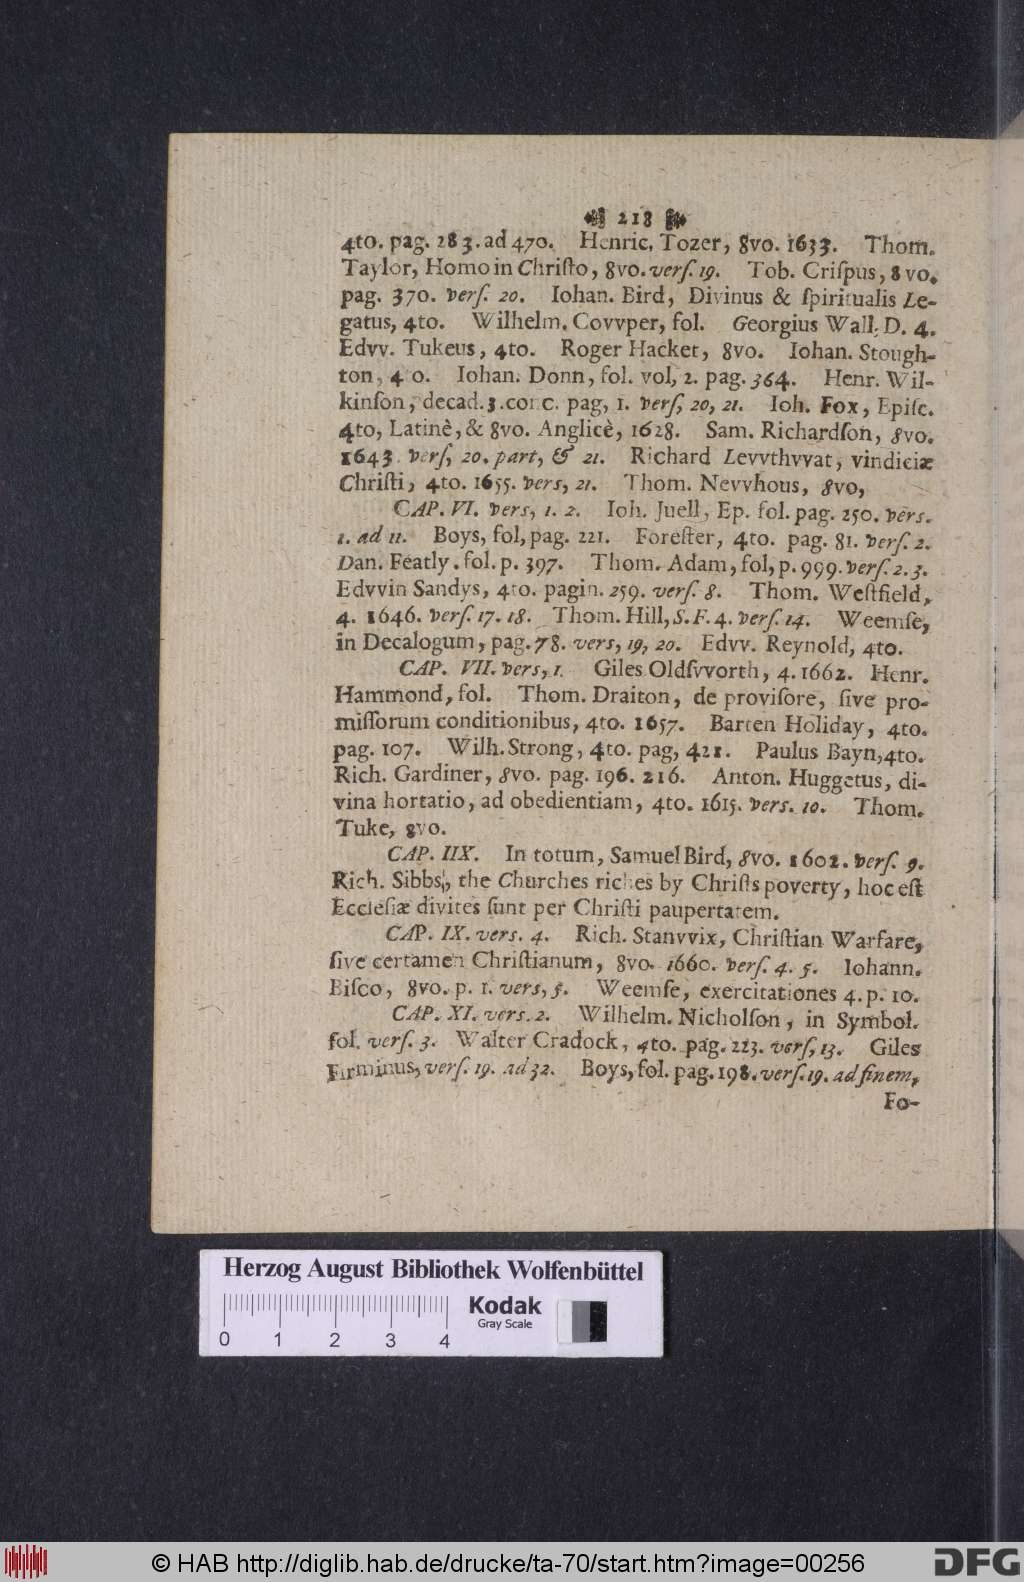 218
4to. pag. 283. ad 470. Henric. Tozer, 8vo. 1633. Thom.
Taylor, Homo in Christo, 8vo. verſ. 19. Tob. Criſpus, 8vo.
pag. 370. verſ. 20. Iohan. Bird, Divinus & ſpiritualis Le-
gatus, 4to. Wilhelm. Covvper, fol. Georgius Wall, D. 4.
Edvv. Tukeus, 4to. Roger Hacket, 8vo. Iohan. Stough-
ton, 4 o. Iohan. Donn, fol. vol, 2. pag. 364. Henr. Wil-
kinſon, decad. 3. conc. pag, 1. verſ, 20, 21. Ioh. Fox, Epiſc.
4to, Latinè, & 8vo. Anglicè, 1628. Sam. Richardſon, 8vo.
1643. verſ, 20. part, & 21. Richard Levvthvvat, vindiciæ
Chriſti, 4to. 1655. vers, 21. Thom. Nevvhous, 8vo,
CAP. VI. vers, 1. 2. Ioh. Juell, Ep. fol. pag. 250. vers.
1. ad 11. Boys, fol, pag. 221. Foreſter, 4to. pag. 81. verſ. 2.
Dan. Featly. fol. p. 397. Thom. Adam, fol, p. 999. verſ. 2. 3.
Edvvin Sandys, 4to. pagin. 259. verſ. 8. Thom. Weſtfield,
4. 1646. verſ. 17. 18. Thom. Hill, S. F. 4. verſ. 14. Weemſe,
in Decalogum, pag. 78. vers, 19, 20. Edvv. Reynold, 4to.
CAP. VII. vers, 1. Giles Oldſvvorth, 4. 1662. Henr.
Hammond, fol. Thom. Draiton, de proviſore, ſive pro-
miſſorum conditionibus, 4to. 1657. Barten Holiday, 4to.
pag. 107. Wilh. Strong, 4to. pag, 421. Paulus Bayn, 4to.
Rich. Gardiner, 8vo. pag. 196. 216. Anton. Huggetus, di-
vina hortatio, ad obedientiam, 4to. 1615. vers. 10. Thom.
Tuke, 8vo.
CAP. IIX. In totum, Samuel Bird, 8vo. 1602. verſ. 9.
Rich. Sibbs, the Churches riches by Chriſts poverty, hoc eſt
Eccleſiæ divites ſunt per Chriſti paupertatem.
CAP. IX. vers. 4. Rich. Stanvvix, Chriſtian Warfare,
ſive certamen Chriſtianum, 8vo. 1660. verſ. 4. 5. Iohann.
Biſco, 8vo. p. 1. vers, 5. Weemſe, exercitationes 4. p. 10.
CAP. XI. vers. 2. Wilhelm. Nicholſon, in Symbol.
fol. verſ. 3. Walter Cradock, 4to. pag. 223. verſ, 13. Giles
Firminus, verſ. 19. ad 32. Boys, fol. pag. 198. verſ. 19. ad finem,
Fo-
Herzog August Bibliothek Wolfenbüttel
Kodak
Gray Scale
0 1 2 3 4
© HAB http://diglib.hab.de/drucke/ta-70/start.htm?image=00256
DFG